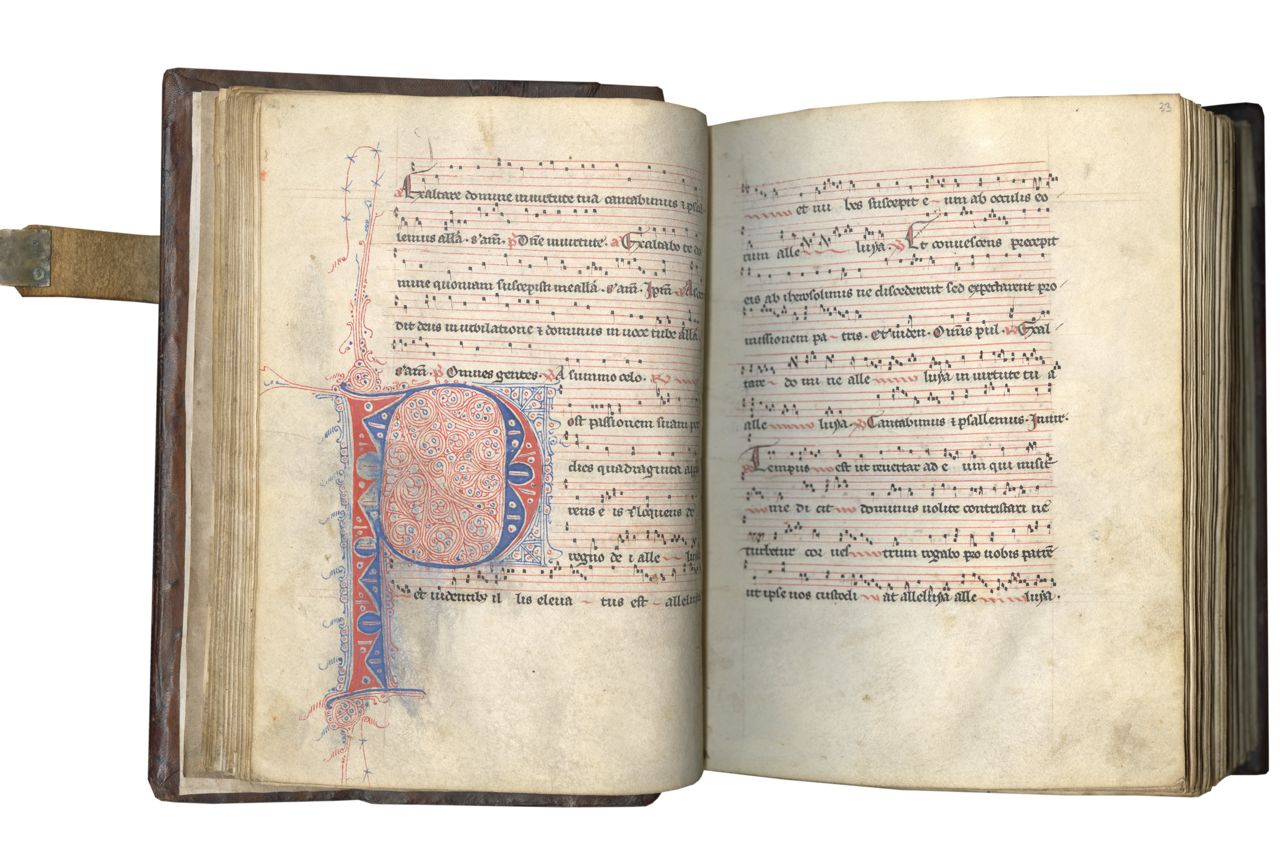 Exaltare domine in uirtute tua cantabimus ⁊ psal
lemus all'a. s'am. p̄ Dn̄e in uirtute. a Exaltabo te do
mine quoniam suscepisti me all'a. s'am. Ipm̄. a Ascen
dit deus in iubilatione ⁊ dominus in uoce tube all'a.
s'am. p̄ Omnes gentes. A summo celo.
Post passionem suam per
dies quadraginta
rens e is ⁊ loquens de
regno de i alle luya
et uidentib; il lis eleua tus est alleluya
33
et nu bes suscepit e um ab occulis eo
rum alle luya. Et conuescens precepit
eis ab iherosolimis ne discederent sed expectarent pro
missionem pa tris. Et uiden. Om̄s psl. Exal
tare do mi ne alle luya in uirtute tu a
alle luya. Cantabimus ⁊ psallemus. In uir.
Tempus est ut reuertar ad e um qui misit
me di cit dominus nolite contristari nec
turbetur cor ues trum rogabo pro uobis patrē
ut ipse uos custodi at alleluya alle luya.